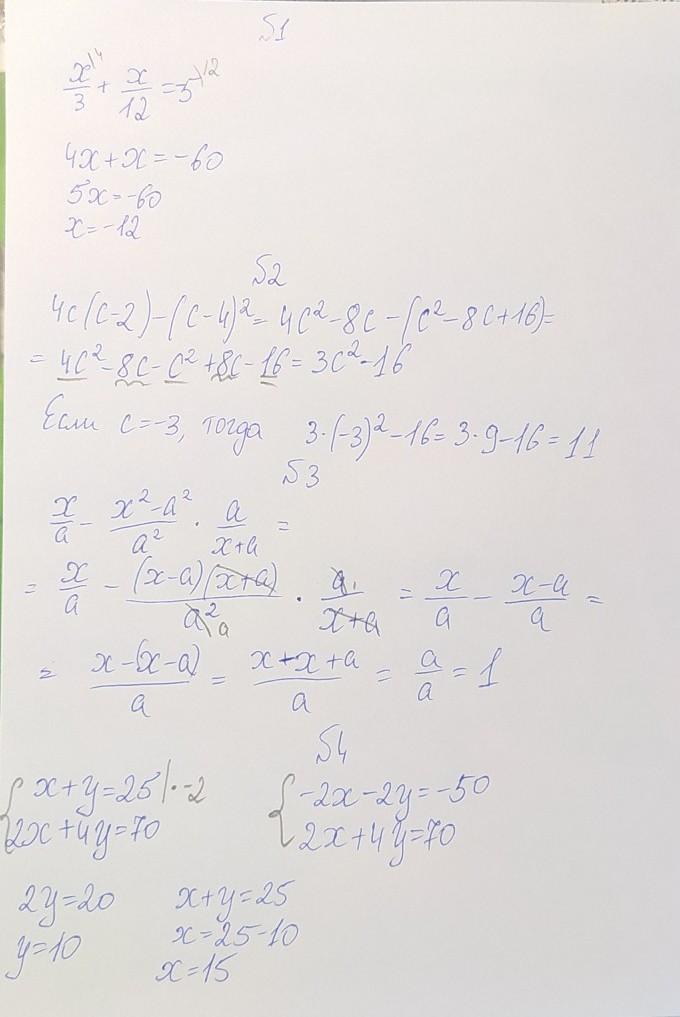 №1
x\4/3 + x/12 = -5\12
4x+x=-60
5x=-60
x=-12
№2
4c(c-2)-(c-4)²=4c²-8c-(c²-8c+16)=
=4c²-8c-c²+8c-16=3c²-16
Если c=-3, тогда 3·(-3)²-16=3·9-16=11
№3
x/a - x²-a²/a² · a/x+a =
= x/a - (x-a)(x+a)/a² a · a 1/x+a = x/a - x-a/a =
= x-(x-a)/a = x-x+a/a = a/a = 1
№4
{x+y=25|·-2 {-2x-2y=-50
2x+4y=70 2x+4y=70
2y=20 x+y=25
y=10 x=25-10
x=15